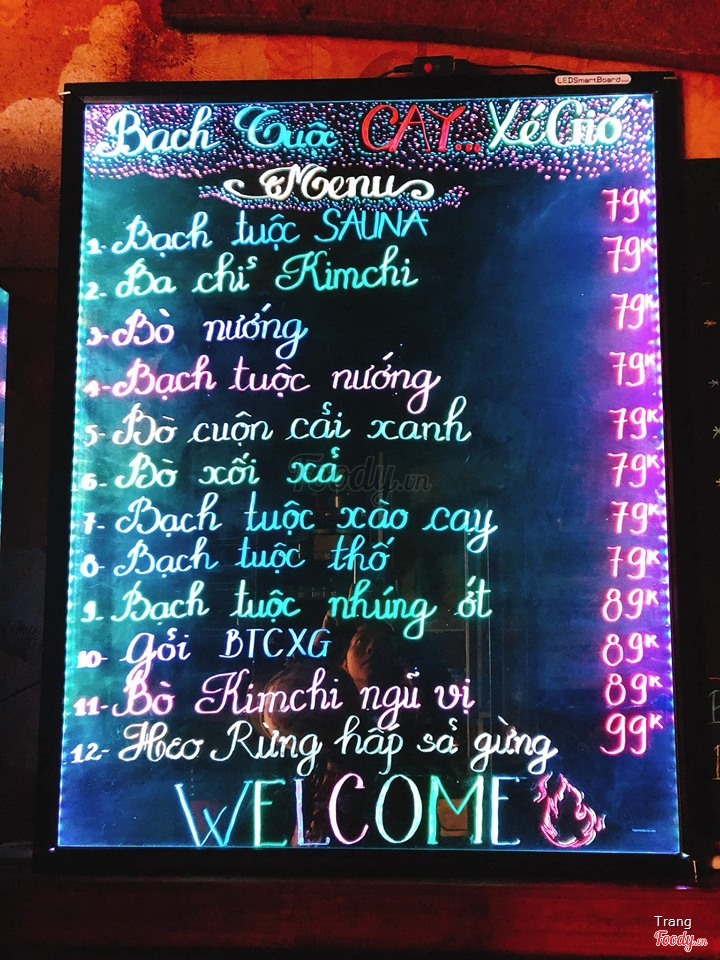 LEDSmartBoard.com
Bạch Tuộc CAY... Xé Gió
Menu
1. Bạch tuộc SAUNA 79K
2- Ba chỉ Kimchi 79K
3- Bò nướng 79K
4- Bạch tuộc nướng 79K
5- Bò cuộn cải xanh 79K
6- Bò xối xả 79K
7- Bạch tuộc xào cay 79K
8- Bạch tuộc thố 79K
9- Bạch tuộc nhúng ớt 89K
10- Gỏi BTCXG 89K
11- Bò Kimchi ngũ vị 89K
12- Heo Rừng hấp sả gừng 99K
WELCOME
Foody.vn
Trang
Foody.vn